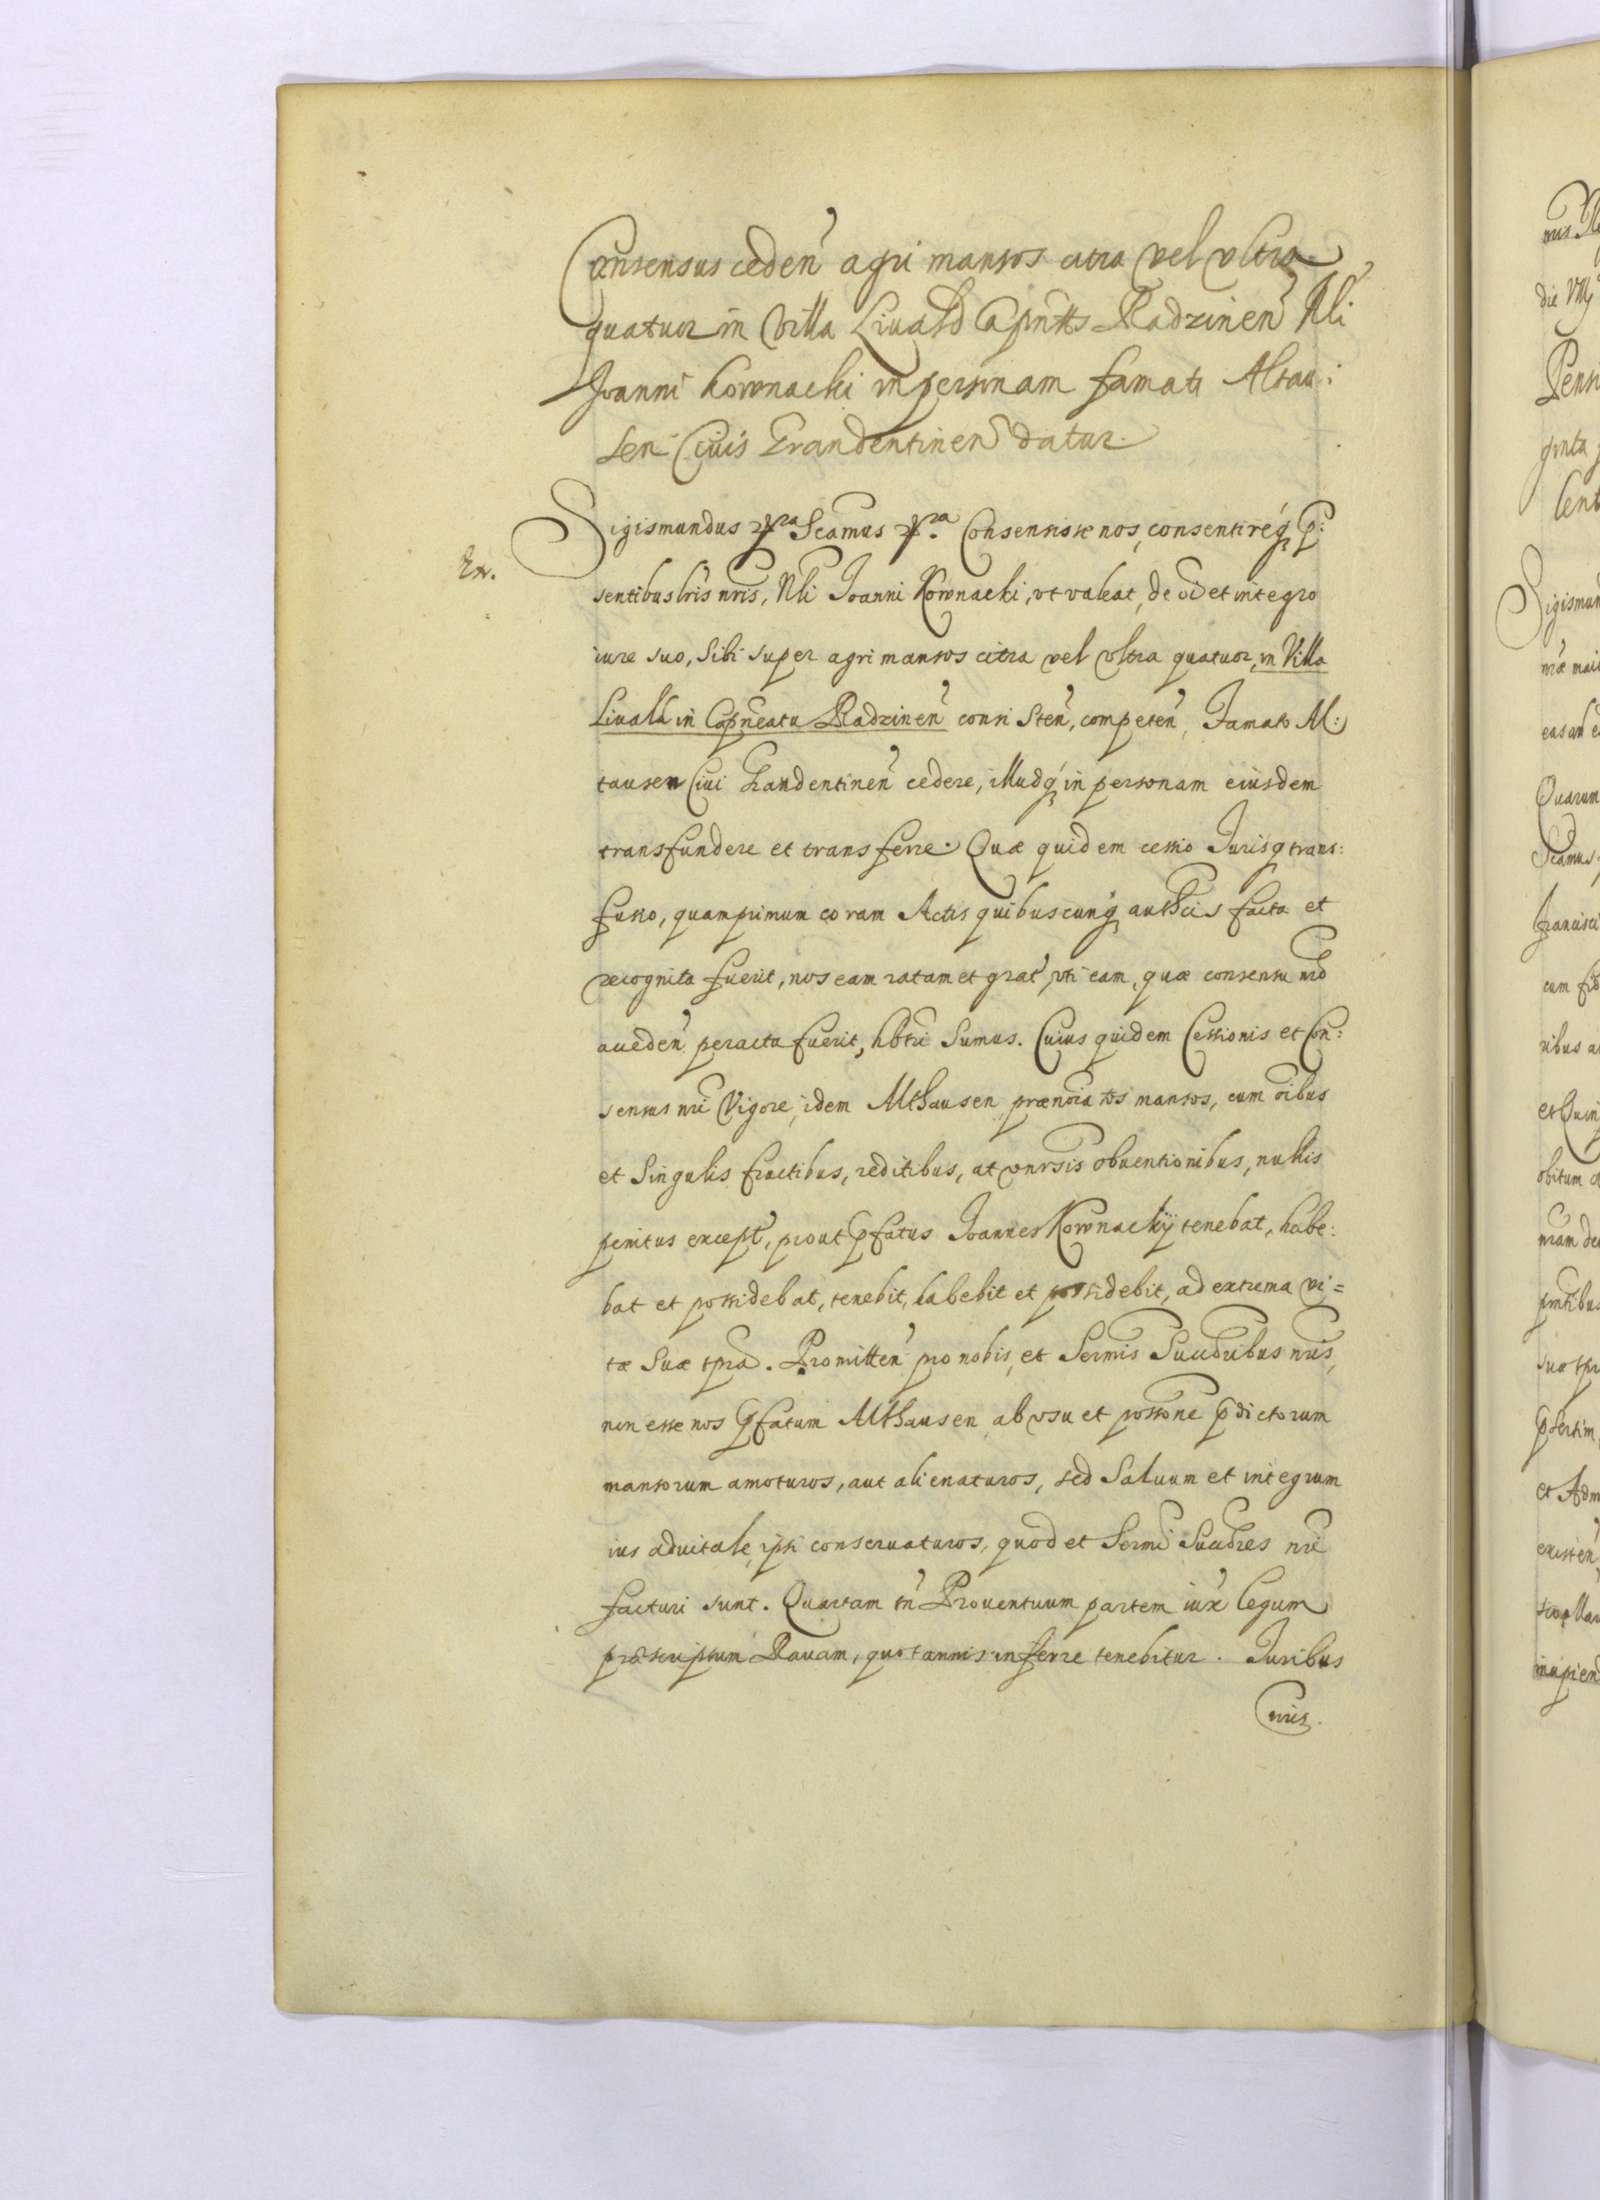 Consensus ceden agri mansos citra vel vltra
quatuor in Villa Liuald Capntts Radzinen Nli
Joanni Kownacki in personam famati Altau:
sen Ciuis Graudentinen datur.
Sigismundus Scamus Consensisse nos, consentireq p:
Ex.
sentibus lris nris, Nli Joanni Kownacki, vt valeat, de oi et integro
iure suo, Sibi super agri mansos citra vel vltra quatuor, in Villa
Liuald in Capneatu Radzinen consisten, competen, Famato Al:
tausen Ciui Graudentinen cedere, illudq in personam eiusdem
transfundere et transferre. Quæ quidem cessio Jurisq trans:
fusio, quamprimum coram Actis quibuscunq authcis facta et
recognita fuerit, nos eam ratam et grat, vti eam, quæ consensu nro
acceden peracta fuerit, hbtri Sumus. Cuius quidem Cessionis et Con:
sensus nri Vigore, idem Althausen prænoiatos mansos, cum oibus
et Singulis fructibus, reditibus, at vnrsis obuentionibus, nullis
penitus except, prout pfatus Joannes Kownackÿ tenebat, habe:
bat et possidebat, tenebit, habebit et possidebit, ad extrema vi=
tæ Suæ tpra. Promitten pro nobis, et Sermis Succribus nris,
non esse nos pfatum Althausen ab vsu et possone pdictorum
mansorum amoturos, aut alienaturos, sed Saluum et integrum
ius aduitale ipsi conseruaturos, quod et Sermi Succres nri
facturi sunt. Quartam tn Prouentuum partem iux Legum
præscriptum Rauam, quotannis inferre tenebitur. Juribus
nris.